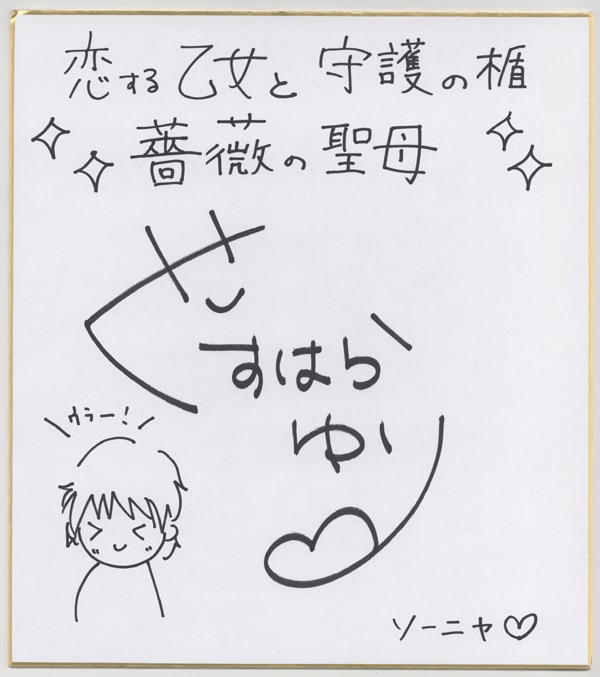 恋する乙女と守護の楯
薔薇の聖母
すはら
ゆい
ウラー!
ソーニャ♡